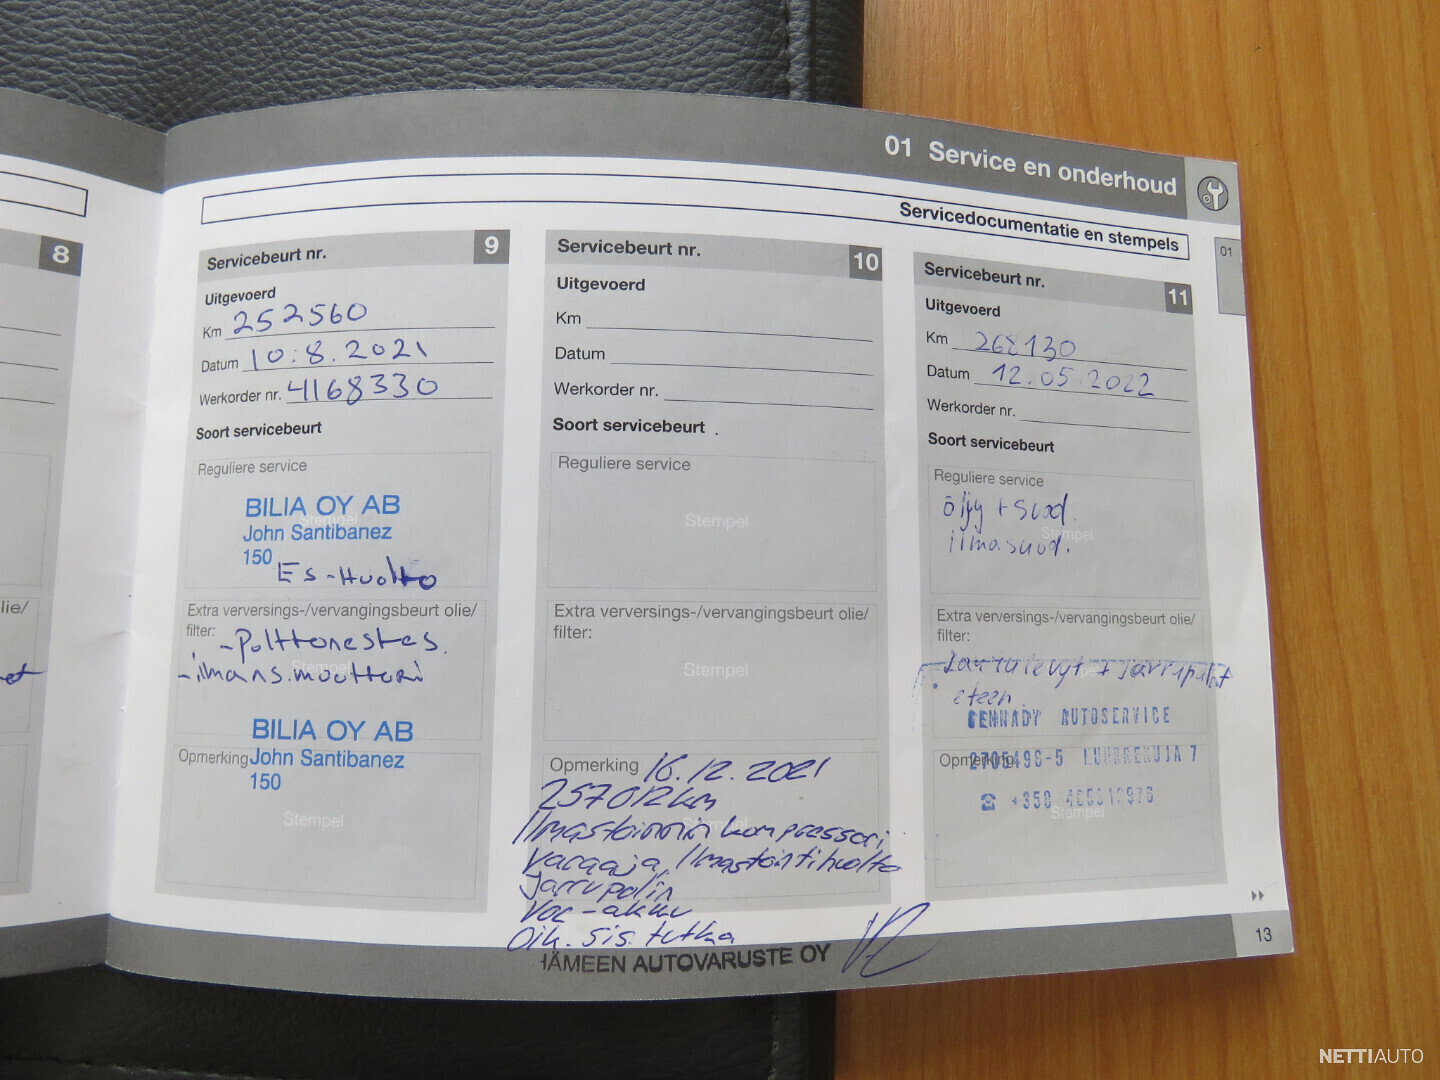 01 Service en onderhoud
Servicedocumentatie en stempels
01
8
lie/
Servicebeurt nr. 9
Uitgevoerd
Km 252560
Datum 10.8.2021
Werkorder nr. 4168330
Soort servicebeurt
Reguliere service
Stempel
BILIA OY AB
John Santibanez
150
Es-Huolto
Extra verversings-/vervangingsbeurt olie/
filter:
-polttonestes.
-ilmans.moottori
Stempel
BILIA OY AB
Opmerking
John Santibanez
150
Stempel
Servicebeurt nr. 10
Uitgevoerd
Km
Datum
Werkorder nr.
Soort servicebeurt
Reguliere service
Stempel
Extra verversings-/vervangingsbeurt olie/
filter:
Stempel
Opmerking 16.12.2021
257012km
Ilmastoinnin kompressori,
varaaja, Ilmastointihuolto
Jarrupalin
Voc-akku
Oik. sis. tutka
HÄMEEN AUTOVARUSTE OY
Servicebeurt nr. 11
Uitgevoerd
Km 268130
Datum 12.05.2022
Werkorder nr.
Soort servicebeurt
Reguliere service
öljy + suod.
Stempel
ilmasuod.
Extra verversings-/vervangingsbeurt olie/
filter:
Jarrulevyt + jarrupalat
eteen
GENNADY AUTOSERVICE
Opmerking
2705496-5 LUHRREKUJA 7
☎ +358
Stempel
13
NETTIAUTO